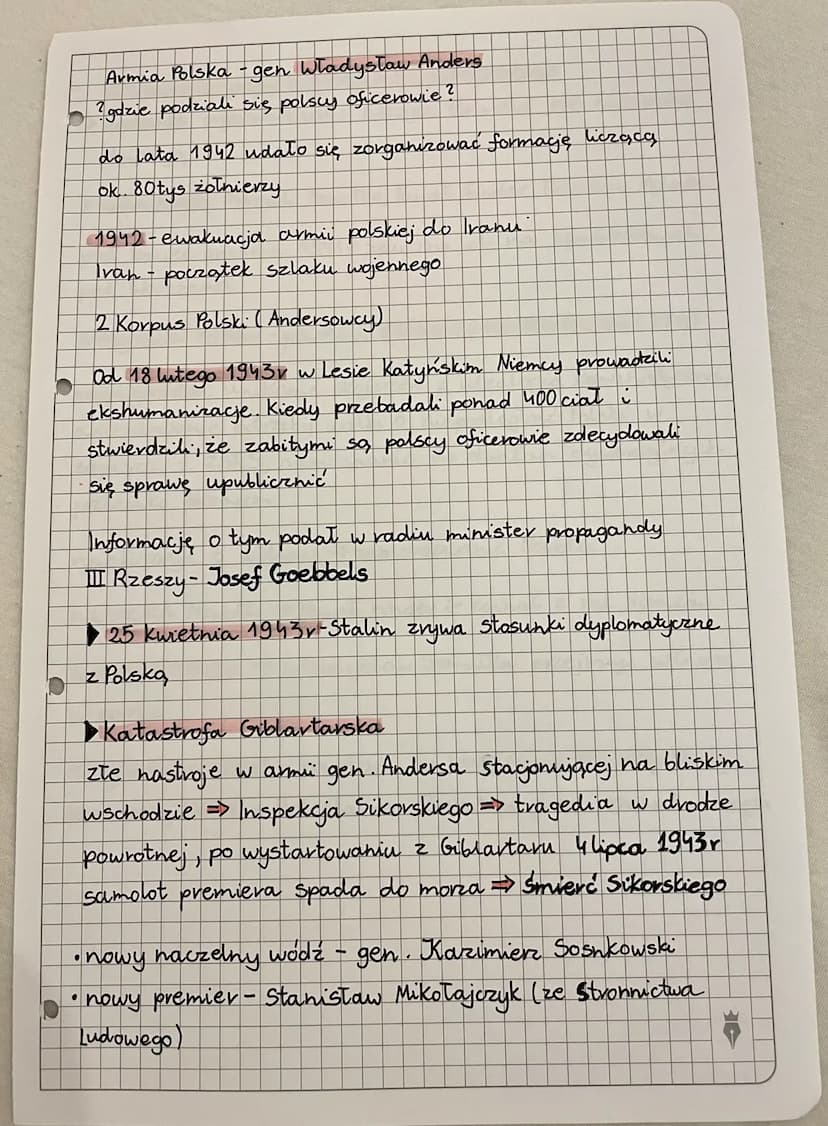 Armia Polska - gen Władysław Anders
?gdzie podziali się polscy oficerowie?
do lata 1942 udało się zorganizować formację liczącą
ok. 80tys żołnierzy
1942 - ewakuacja armii polskiej do Iranu
Iran - początek szlaku wojennego
2 Korpus Polski (Andersowcy)
Od 18 lutego 1943r w Lesie Katyńskim Niemcy prowadzili
ekshumanizacje. Kiedy przebadali ponad 400 ciał i
stwierdzili, że zabitymi są polscy oficerowie zdecydowali
się sprawę upublicznić
Informację o tym podał w radiu minister propagandy
III Rzeszy - Josef Goebbels
▶ 25 kwietnia 1943r - Stalin zrywa stosunki dyplomatyczne
z Polską
▶ Katastrofa Giblartarska
złe nastroje w armii gen. Andersa stacjonującej na bliskim
wschodzie ⇒ Inspekcja Sikorskiego ⇒ tragedia w drodze
powrotnej, po wystartowaniu z Giblartaru 4 lipca 1943r
samolot premiera spada do morza ⇒ śmierć Sikorskiego
• nowy naczelny wódź - gen. Kazimierz Sosnkowski
• nowy premier - Stanisław Mikołajczyk (ze Stronnictwa
Ludowego)